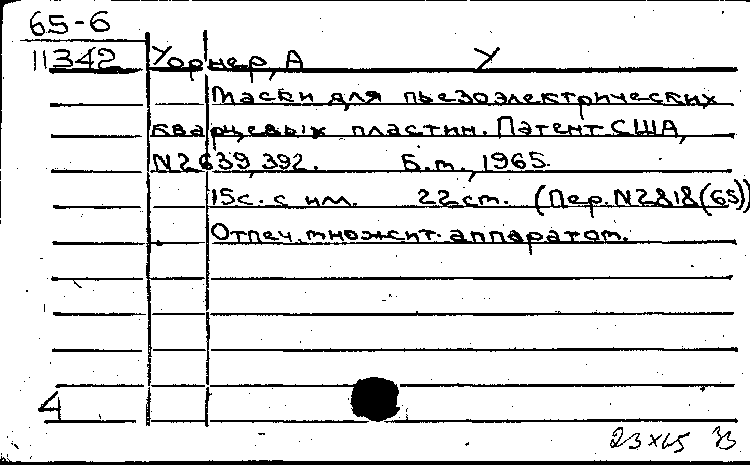 65-6
11342 Уорнер, А У
Маски для пьезоэлектрических
кварцевых пластин. Патент США,
N2639,392. Б.м., 1965.
15с. с ил. 22см. (Пер.N2818(65))
Отпеч. множит. аппаратом.
4